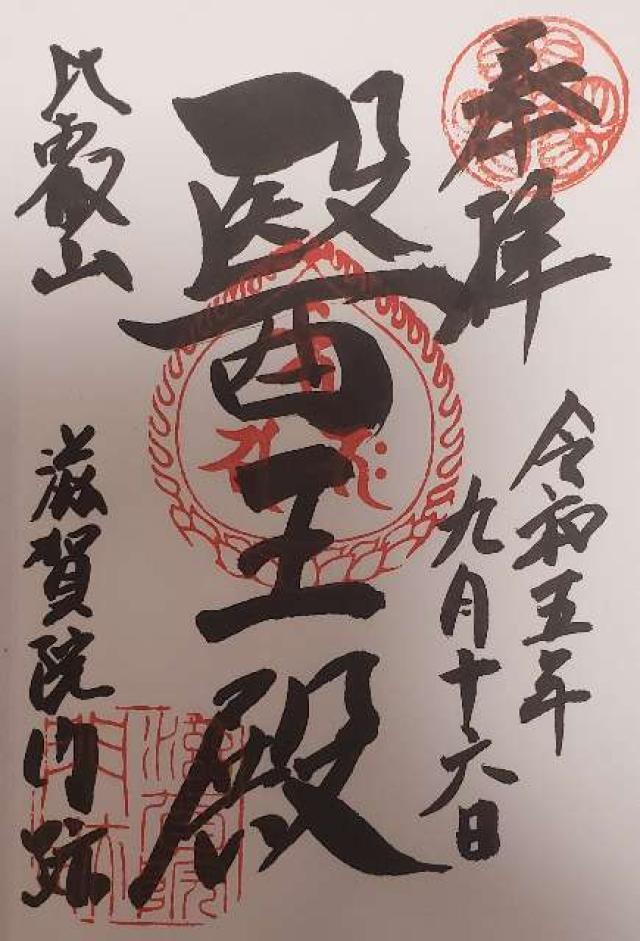 奉拝
令和五年
九月十六日
醫王殿
比叡山
滋賀院門跡